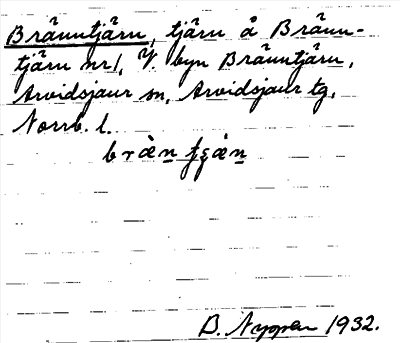 Bränntjärn, tjärn å Bränn-
tjärn nr 1, V. byn Bränntjärn,
Arvidsjaur sn, Arvidsjaur tg,
Norrb. l.
B. Nyman 1932.